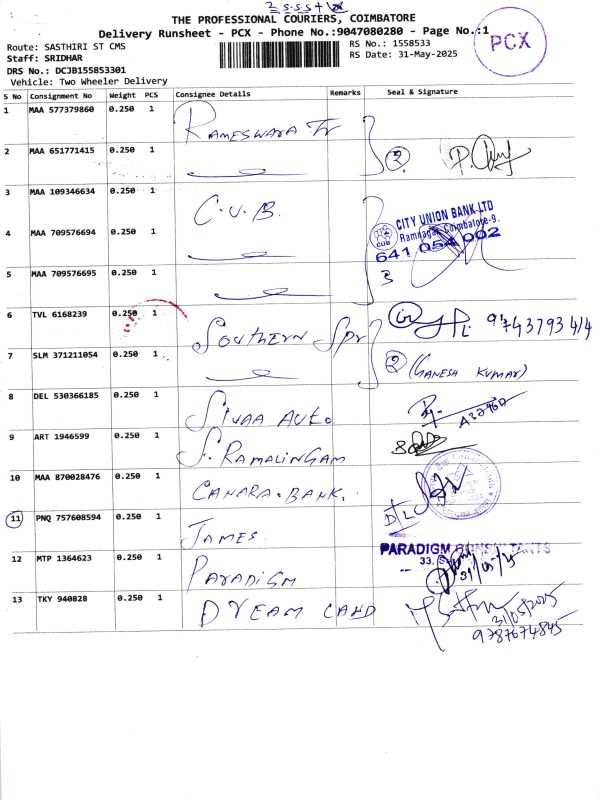 THE PROFESSIONAL COURIERS, COIMBATORE
Delivery Runsheet - PCX - Phone No.:9047080280 - Page No.:1
PCX
Route: SASTHIRI ST CMS
RS No.: 1558533
Staff: SRIDHAR
RS Date: 31-May-2025
DRS No.: DCJB155853301
Vehicle: Two Wheeler Delivery
S No Consignment No Weight PCS Consignee Details Remarks Seal & Signature
1 MAA 577379860 0.250 1 RAMESWARA Tr
2 MAA 651771415 0.250 1 2
3 MAA 109346634 0.250 1 C.U.B.
CITY UNION BANK LTD
Ramnagar, Coimbatore-9.
CUB
641 054 002
4 MAA 709576694 0.250 1
5 MAA 709576695 0.250 1 3
6 TVL 6168239 0.250 1 SOUTHERN Spr
7 SLM 371211054 0.250 1 2 (GANESH KUMAR)
8 DEL 530366185 0.250 1 SIVAA AUTO
9 ART 1946599 0.250 1 S. RAMALINGAM
10 MAA 870028476 0.250 1 CANARA. BANK.
11 PNQ 757608594 0.250 1 JAMES
PARADIGM CONSULTANTS
33.
12 MTP 1364623 0.250 1 PARADIGM
31/05/25
13 TKY 940828 0.250 1 DREAM CAND
31/05/2025
9787674845